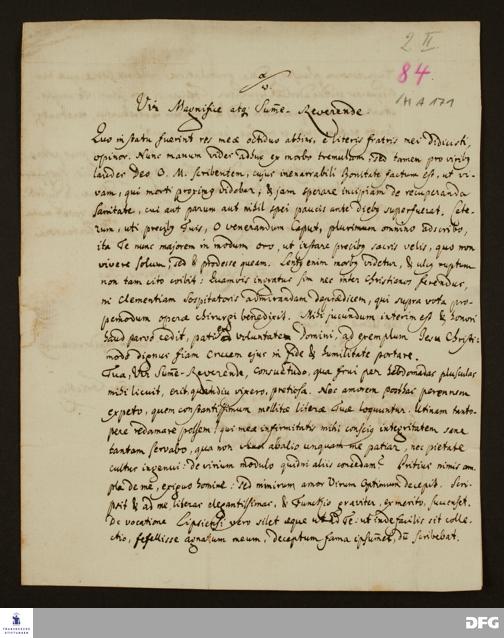 2 II
84.
IHA 171
Vir Magnifice atq; Sume-Reverende
Quo in statu fuerint res meæ octiduo abhinc, e literis fratris mei didicisti,
opinor. Nunc manum vides adhuc ex morbo tremulam. Sed tamen pro viribus
laudes Deo O. M. scribentem, cujus inenarrabili Bonitate factum est, ut vi-
vam, qui morti proximus videbar, & jam sperare incipiam de recuperanda
Sanitate, cui aut parum aut nihil spei paucis ante diebus superfuerat. Cete-
rum, uti precibus Tuis, O venerandum Caput, plurimum omnino adscribo,
ita Te nunc majorem in modum oro, ut instare precibus sacris velis, quo non
vivere solum, sed & prodesse queam. morbus videtur, & ulcus ruptum
non tam cito coibit: Quamvis ingratus sim nec inter Christianos ferendus,
ni Clementiam Sospitatoris admirandam deprædicem, qui supra vota pro-
pemodum operæ chirurgi benedixit. Mihi jucundum interim est & honori
haud parvo cedit, pati voluntatem Domini, ad exemplum Jesu Christi:
modo dignus fiam Crucem ejus in fide & humilitate portare.
Tua, Vir Sume-Reverende, consuetudo, qua frui per hebdomadas plusculas
mihi licuit, erit, quamdiu vixero, pretiosa. Nec amorem posthac perennem
expeto, quem constantissimum mollitæ literæ Tuæ loquuntur. Utinam tanto-
pere redamare possem! qui meæ infirmitatis mihi conscius integritatem sane
tantam servabo, qua non abalio unquam me patiar, nec pietate
cultus ingenui: de virium modulo quidni aliis concedam? Pritius nimis am-
pla de me, exiguo homine: sed nimirum amor Virum Optimum decepit. Scri-
psit & ad me literas elegantissimas, & functio graviter, ex merito, succenset.
De vocatione Lipsiensi vero silet æque ut ad Te: ut inde facilis sit colle-
ctio, fefellisse agnatum meum, deceptum fama ipsum, dum scribebat.
FRANCKESCHE STIFTUNGEN
DFG